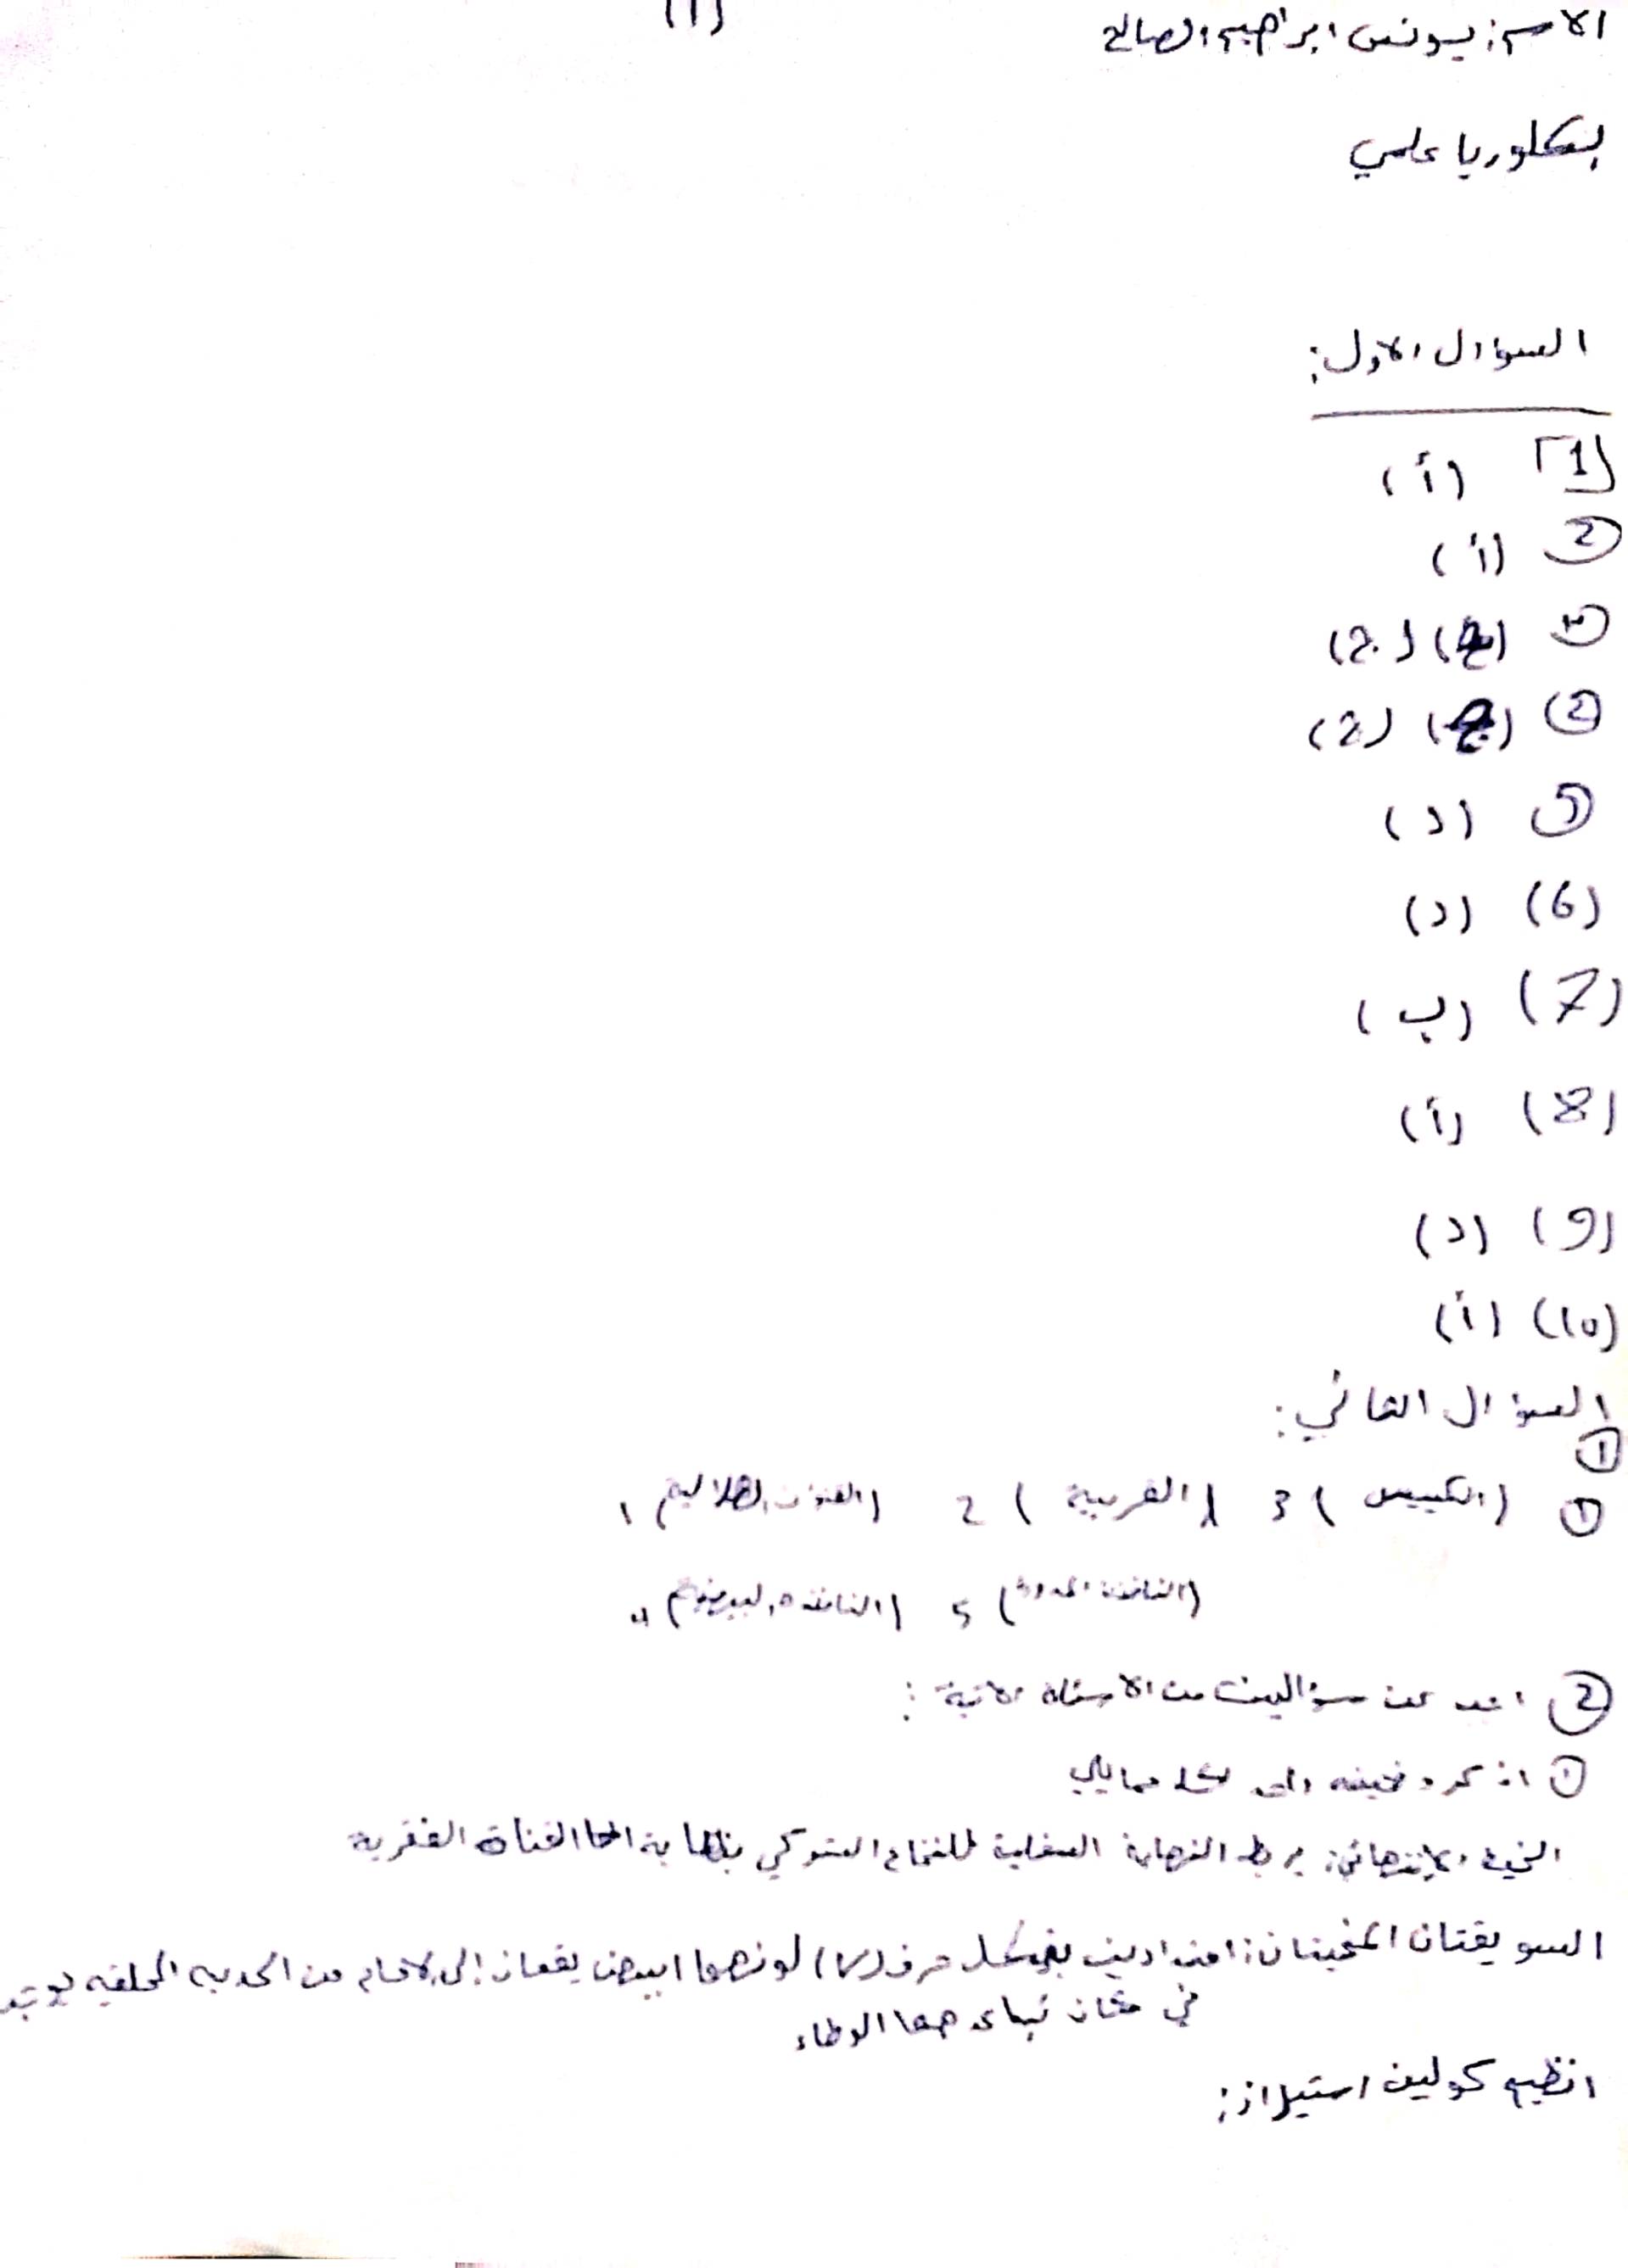 (1)
الاسم: يونس ابراهيم الصالح
بكلوريا علمي
السوال الاول:
1 (أ)
2 (أ)
3 (ج)
(ج)
5 (د)
(6) (د)
(7) (ب)
(8) (أ)
(9) (د)
(10) (أ)
السؤال الثاني:
1
1 (الكييس) 3 (القريبة) 2 (القنوات الهلالية) 1
(النافذة المدورة) 5 (النافذة البيضية) 4
2 اجب عن سؤالين من الاسئلة الاتية:
1 اذكر وظيفه واحده لكل ممايلي
الخيط الانتهائي: يربط النهاية السفلية للنخاع الشوكي بنهاية القناة الفقرية
السويقتان المخيتان: امتدادين بشكل حرف (V) لونهما ابيض يقعان إلى الامام من الحدبه الحلقيه
في مكان تباعدهما الوطاء
انظيم كولين استيراز: